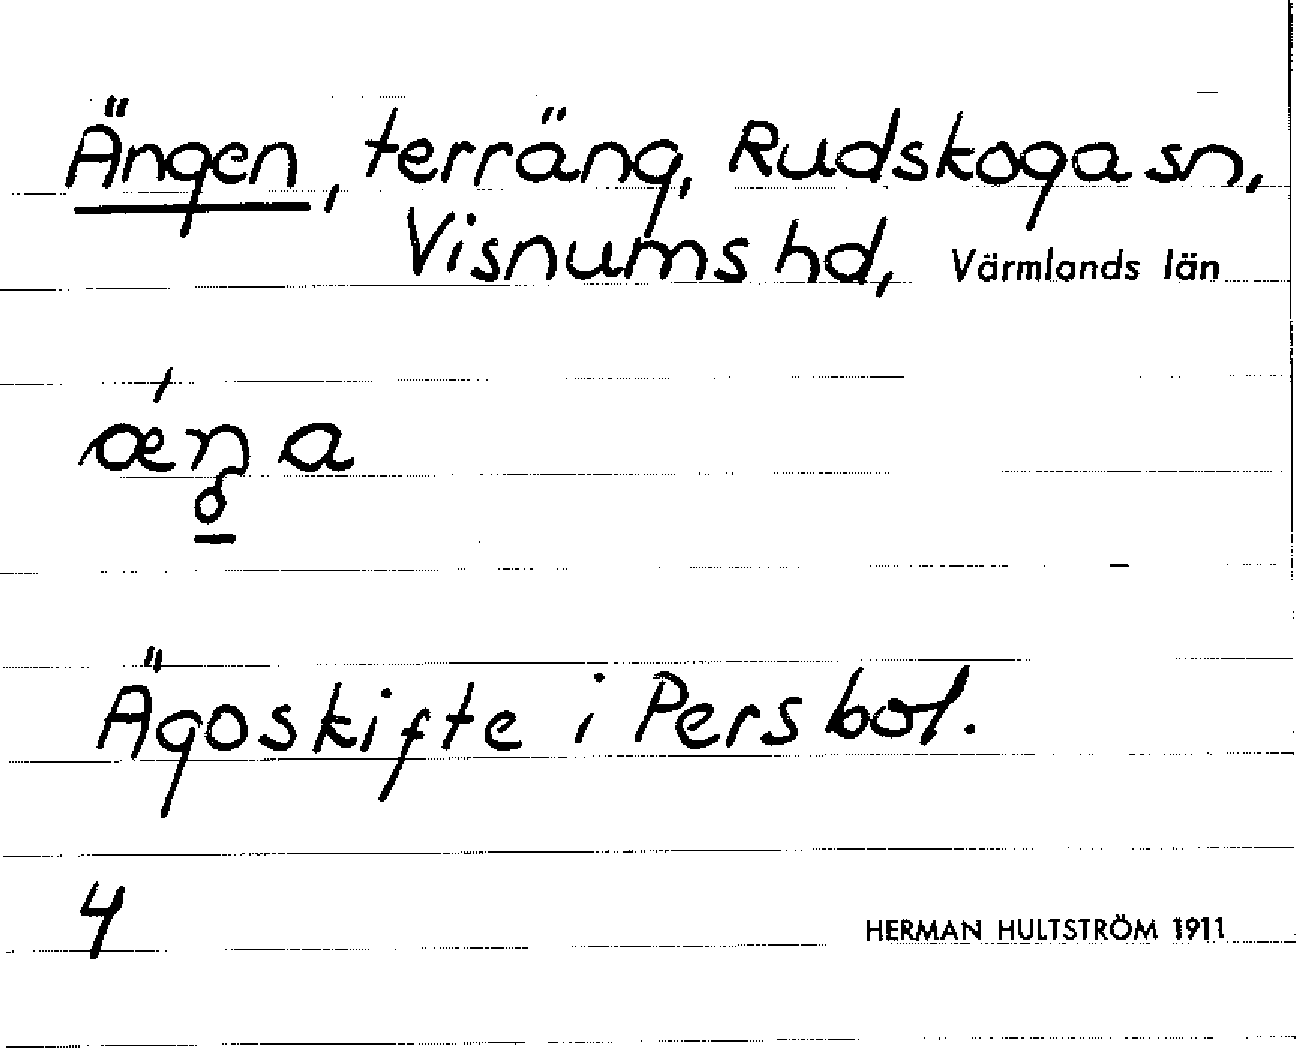 Ängen, terräng, Rudskoga sn,
Visnums hd, Värmlands län
ǽŋ̥̱ a
Ägoskifte i Persbol.
4 HERMAN HULTSTRÖM 1911